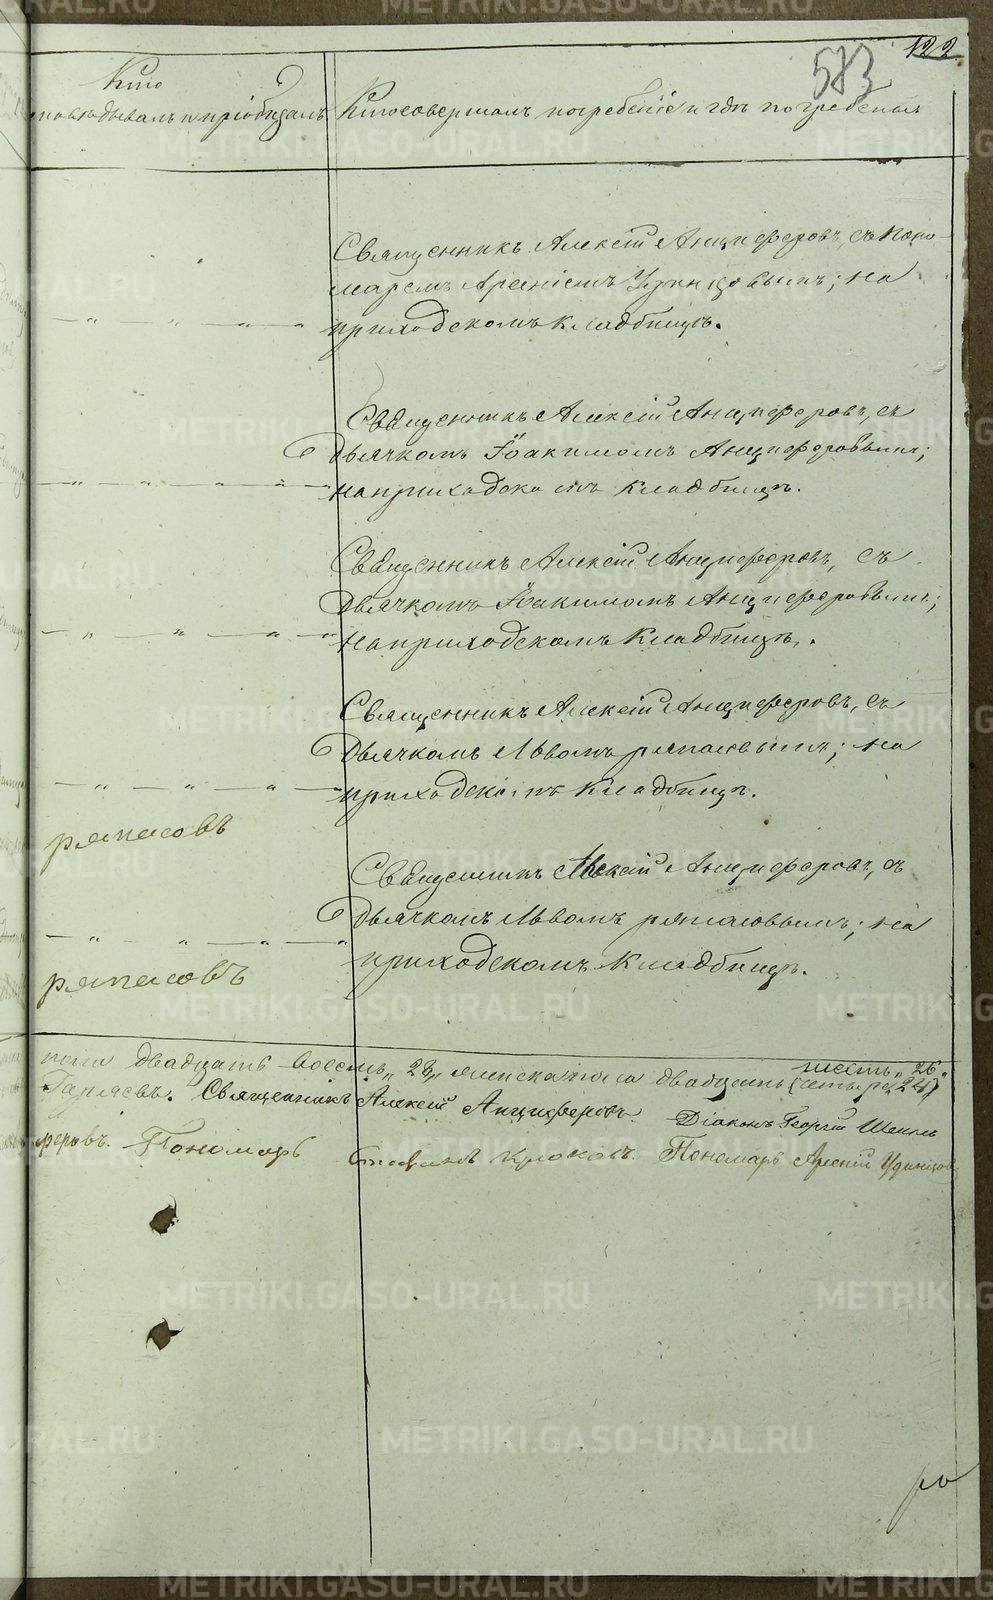 583
122
Кто
исповѣдывалъ и пріобщалъ
Кто совершалъ погребеніе и гдѣ погребены
Священникъ Алексій Анциферовъ, съ поно-
маремъ Арсеніемъ Удинцовымъ; на
приходскомъ кладбищѣ.
Священникъ Алексій Анциферовъ, съ
дьячкомъ Іоакимомъ Анциферовымъ;
на приходскомъ кладбищѣ.
Священникъ Алексій Анциферовъ, съ
дьячкомъ Іоакимомъ Анциферовымъ;
на приходскомъ кладбищѣ.
Священникъ Алексій Анциферовъ, съ
дьячкомъ Львомъ Ряпасовымъ; на
приходскомъ кладбищѣ.
Ряпасовъ
Священникъ Алексій Анциферовъ, съ
дьячкомъ Львомъ Ряпасовымъ; на
приходскомъ кладбищѣ.
Ряпасовъ
пола двадцать восемь „28„ женскаго пола двадцать шесть „26„
(четыре „24)
Священникъ Алексій Анциферовъ. Діаконъ Георгій
феровъ. Пономарь Крюковъ. Пономарь Арсеній Удинцов
METRIKI.GASO-URAL.RU